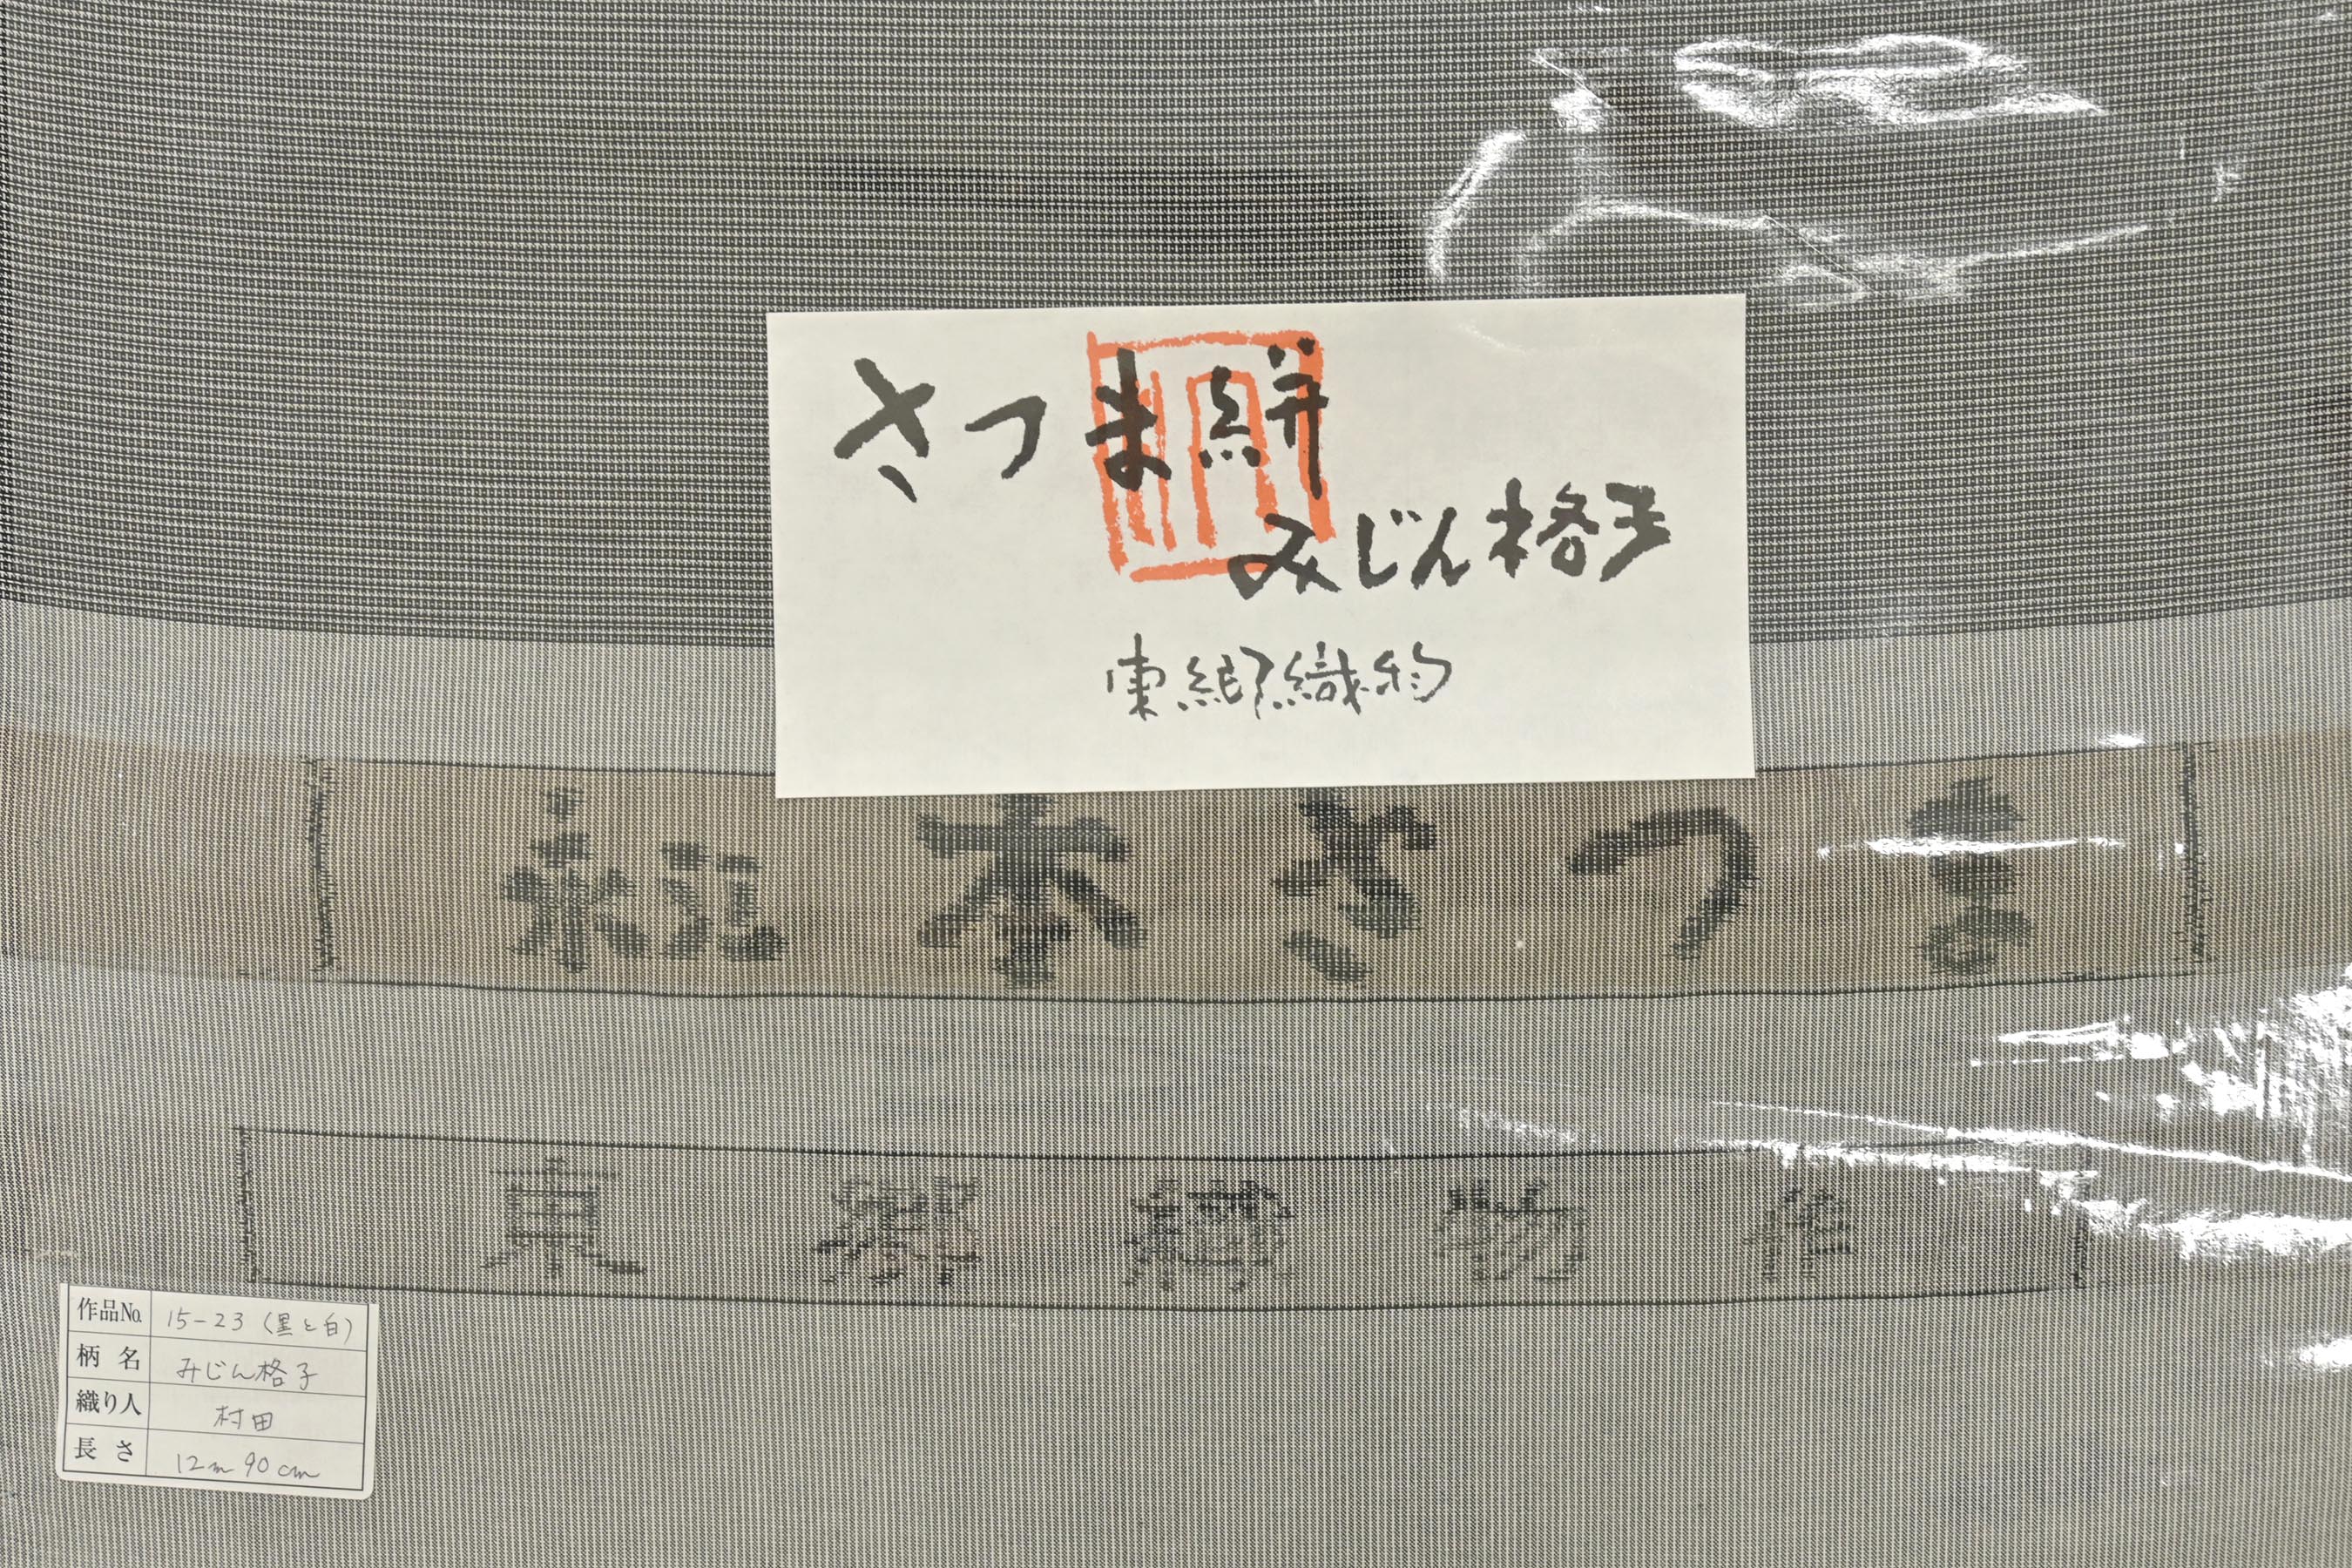 さつま絣
みじん格子
東郷織物
東郷織物作
作品No. 15-23(黒と白)
柄名 みじん格子
織り人 村田
長さ 12m 90cm